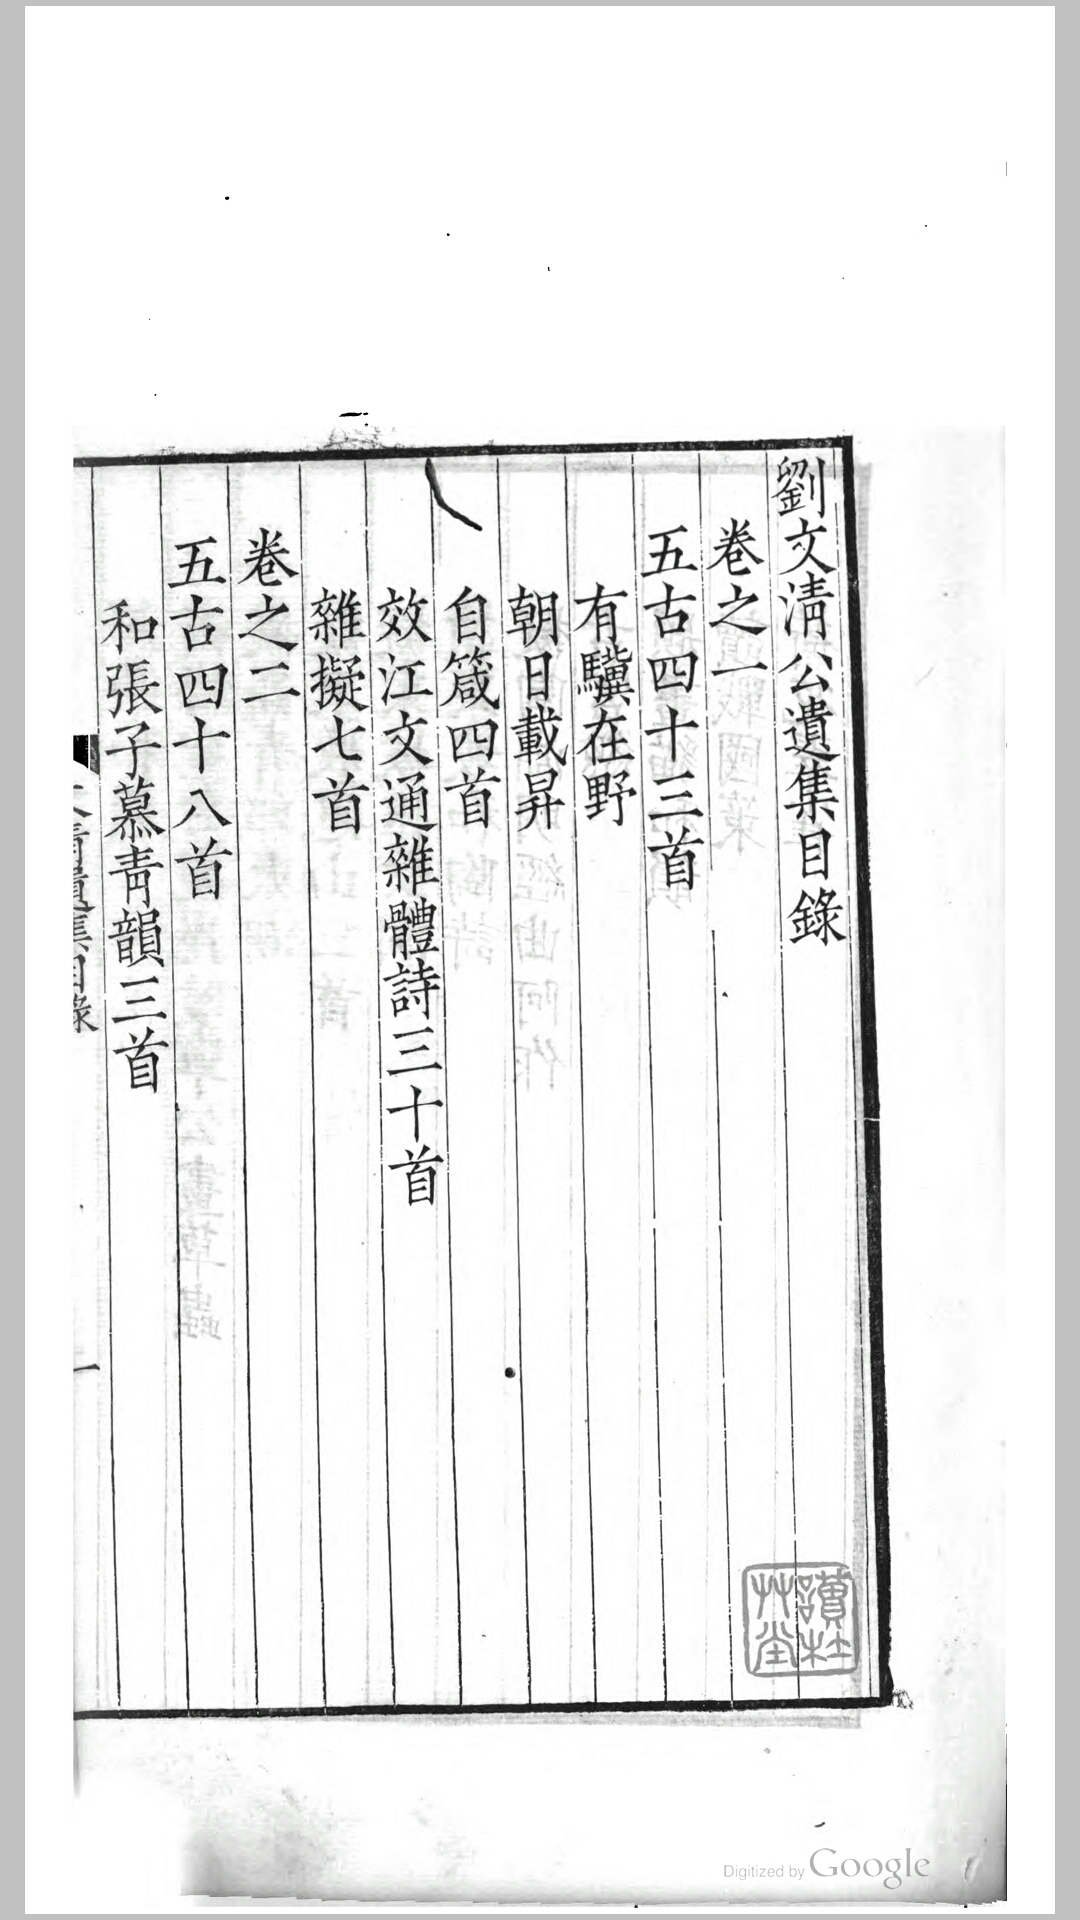 劉文清公遺集目錄
卷之一
五古四十三首
有驥在野
朝日載昇
自箴四首
效江文通雜體詩三十首
雜擬七首
卷之二
五古四十八首
和張子慕青韻三首
遺集目錄
一
讀杜
艸堂
Digitized by Google